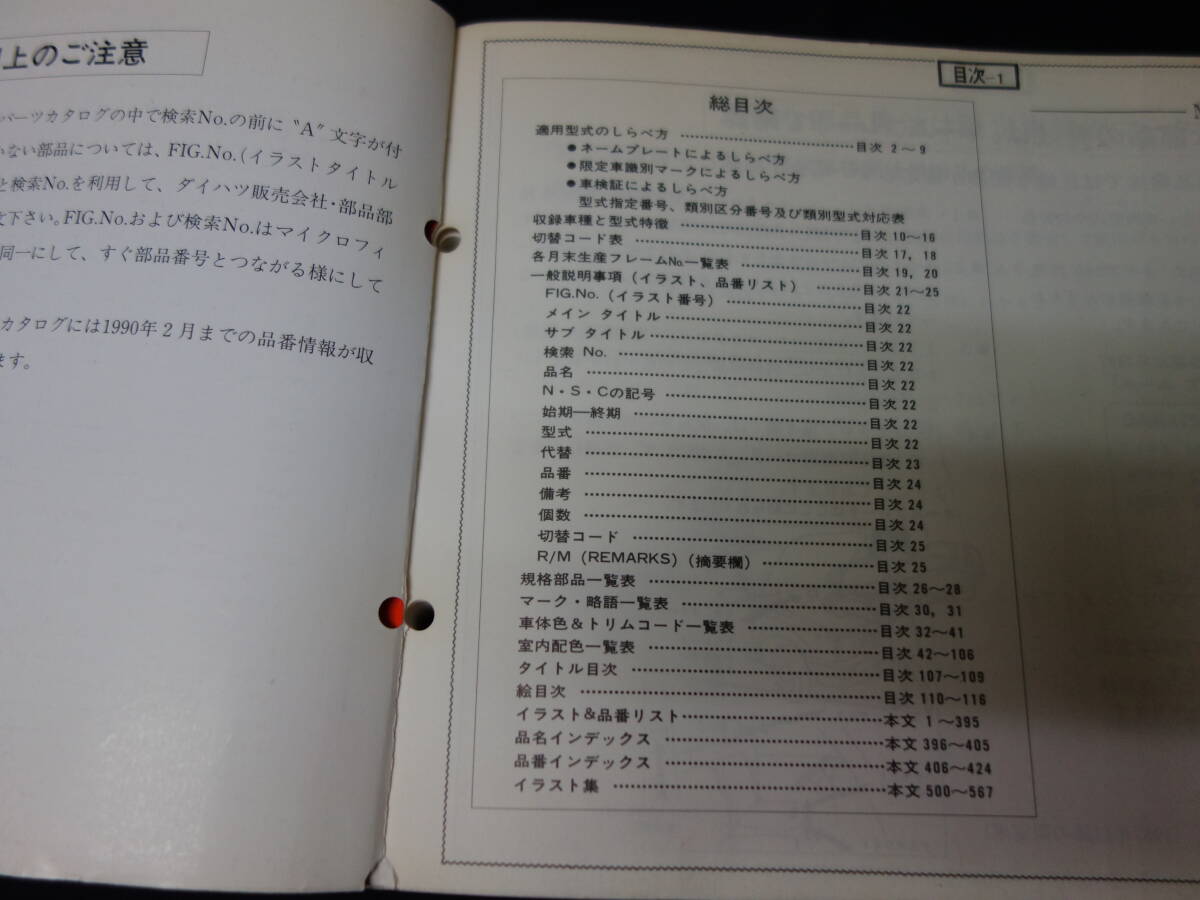 上のご注意
パーツカタログの中で検索No.の前に〝A〟文字が付
ない部品については、FIG.No.(イラストタイトル
と検索No.を利用して、ダイハツ販売会社・部品部
下さい。FIG.No.および検索No.はマイクロフィ
同一にして、すぐ部品番号とつながる様にして
カタログには1990年2月までの品番情報が収
ます。
目次-1
総目次
適用型式のしらべ方 ………目次 2～9
●ネームプレートによるしらべ方
●限定車識別マークによるしらべ方
●車検証によるしらべ方
型式指定番号、類別区分番号及び類別型式対応表
収録車種と型式特徴 ………目次 10～16
切替コード表 ………目次 17, 18
各月末生産フレームNo.一覧表 ………目次 19, 20
一般説明事項(イラスト、品番リスト) ………目次 21～25
FIG.No.(イラスト番号) ………目次 22
メイン タイトル ………目次 22
サブ タイトル ………目次 22
検索 No. ………目次 22
品名 ………目次 22
N・S・Cの記号 ………目次 22
始期―終期 ………目次 22
型式 ………目次 22
代替 ………目次 23
品番 ………目次 24
備考 ………目次 24
個数 ………目次 24
切替コード ………目次 25
R/M (REMARKS)(摘要欄) ………目次 25
規格部品一覧表 ………目次 26～28
マーク・略語一覧表 ………目次 30, 31
車体色&トリムコード一覧表 ………目次 32～41
室内配色一覧表 ………目次 42～106
タイトル目次 ………目次 107～109
絵目次 ………目次 110～116
イラスト&品番リスト ………本文 1～395
品名インデックス ………本文 396～405
品番インデックス ………本文 406～424
イラスト集 ………本文 500～567